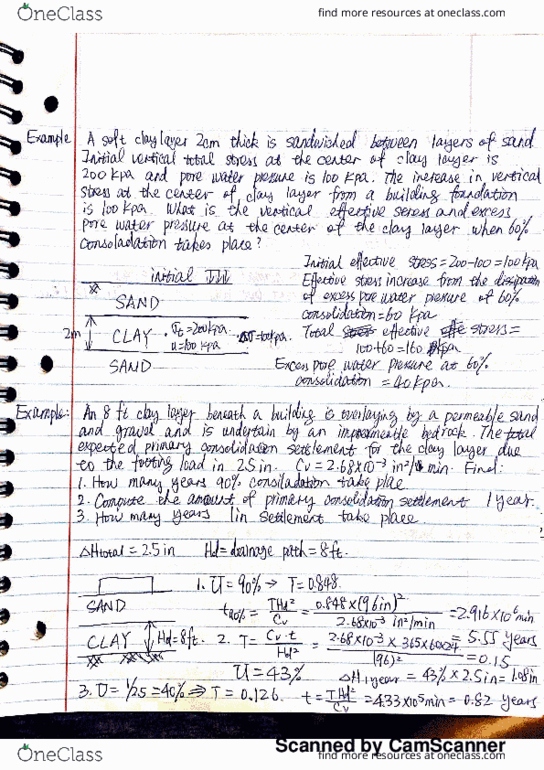 OneClass
find more resources at oneclass.com
Example A soft clay layer 2cm thick is sandwished between layers of sand
Initial vertical total stress at the center of clay layer is
200 kpa and pore water pressure is 100 kpa. The increase in vertical
stress at the center of clay layer from a building foundation
is 100 kpa. What is the vertical effective seress and excess
pore water pressure at the center of the clay layer when 60%
consoladation takes place?
Initial effective stress = 200-100 = 100 kpa
Effective stress increase from the dissipation
of excess pore water pressure of 60%
consolidation = 60 kpa
Total effective stress =
100+60 = 160 kpa.
Excess pore water pressure at 60%
consolidation = 40 kpa.
initial
SAND
2m CLAY σt = 200 kpa. Δσ = 100 kpa.
u = 100 kpa
SAND
Example: An 8 ft clay layer beneath a building is overlaying by a permeable sand
and gravel and is undertain by an impermeable bedrock. The total
expected primary consolidation settlement for the clay layer due
to the footing load in 2.5 in. Cv = 2.68×10⁻³ in²/min. Find:
1. How many years 90% consiladation take place
2. Compute the amount of primary consolidation settlement 1 year.
3. How many years 1in settlement take place.
ΔHtotal = 2.5 in Hd = drainage path = 8 ft.
1. U = 90% ⇒ T = 0.848.
SAND
t90% = THd²/Cv = 0.848×(96in)²/2.68×10⁻³ in²/min = 2.916×10⁶ min
= 5.55 years
CLAY Hd = 8ft. 2. T = Cv·t/Hd² = 2.68×10⁻³×365×60×24/(96)² = 0.15
U = 43% ΔH1year = 43% × 2.5in = 1.08in
3. U = 1/2.5 = 40% ⇒ T = 0.126. t = THd²/Cv = 4.33×10⁵ min = 0.82 years
Scanned by CamScanner
OneClass
find more resources at oneclass.com